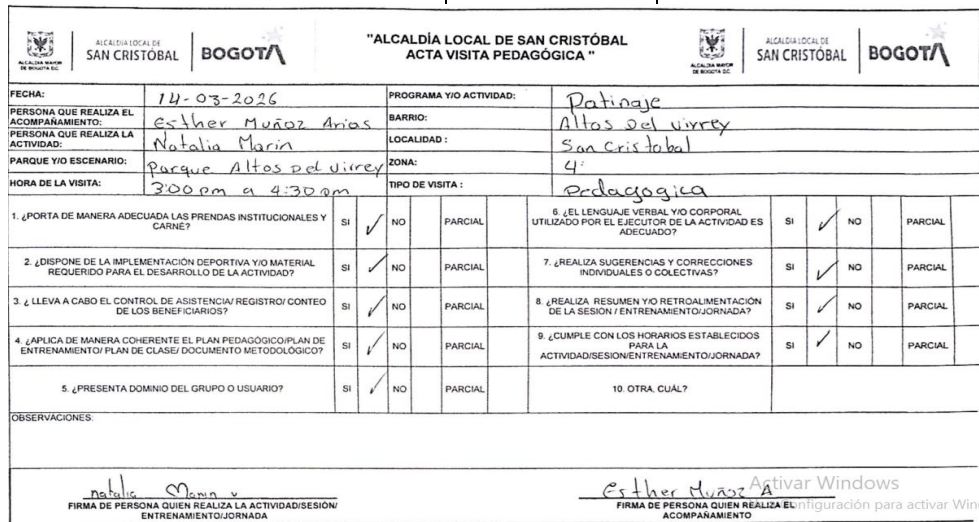 ALCALDÍA MAYOR
DE BOGOTÁ D.C.
ALCALDÍA LOCAL DE
SAN CRISTÓBAL
BOGOTÁ
"ALCALDÍA LOCAL DE SAN CRISTÓBAL
ACTA VISITA PEDAGÓGICA "
ALCALDÍA MAYOR
DE BOGOTÁ D.C.
ALCALDÍA LOCAL DE
SAN CRISTÓBAL
BOGOTÁ
FECHA: 14-03-2026 PROGRAMA Y/O ACTIVIDAD: Patinaje
PERSONA QUE REALIZA EL ACOMPAÑAMIENTO: Esther Muñoz Arias BARRIO: Altos Del virrey
PERSONA QUE REALIZA LA ACTIVIDAD: Natalia Marin LOCALIDAD : San Cristobal
PARQUE Y/O ESCENARIO: Parque Altos Del virrey ZONA: 4:
HORA DE LA VISITA: 3:00 pm a 4:30 pm TIPO DE VISITA : Pedagogica
1. ¿PORTA DE MANERA ADECUADA LAS PRENDAS INSTITUCIONALES Y
CARNÉ? SI ✓ NO PARCIAL
6. ¿EL LENGUAJE VERBAL Y/O CORPORAL
UTILIZADO POR EL EJECUTOR DE LA ACTIVIDAD ES
ADECUADO? SI ✓ NO PARCIAL
2. ¿DISPONE DE LA IMPLEMENTACIÓN DEPORTIVA Y/O MATERIAL
REQUERIDO PARA EL DESARROLLO DE LA ACTIVIDAD? SI ✓ NO PARCIAL
7. ¿REALIZA SUGERENCIAS Y CORRECCIONES
INDIVIDUALES O COLECTIVAS? SI ✓ NO PARCIAL
3. ¿ LLEVA A CABO EL CONTROL DE ASISTENCIA/ REGISTRO/ CONTEO
DE LOS BENEFICIARIOS? SI ✓ NO PARCIAL
8. ¿REALIZA RESUMEN Y/O RETROALIMENTACIÓN
DE LA SESION / ENTRENAMIENTO/JORNADA? SI ✓ NO PARCIAL
4. ¿APLICA DE MANERA COHERENTE EL PLAN PEDAGÓGICO/PLAN DE
ENTRENAMIENTO/ PLAN DE CLASE/ DOCUMENTO METODOLÓGICO? SI ✓ NO PARCIAL
9. ¿CUMPLE CON LOS HORARIOS ESTABLECIDOS
PARA LA
ACTIVIDAD/SESION/ENTRENAMIENTO/JORNADA? SI ✓ NO PARCIAL
5. ¿PRESENTA DOMINIO DEL GRUPO O USUARIO? SI ✓ NO PARCIAL
10. OTRA, CUÁL?
OBSERVACIONES:
natalia Marin v
FIRMA DE PERSONA QUIEN REALIZA LA ACTIVIDAD/SESIÓN/
ENTRENAMIENTO/JORNADA
Esther Muñoz A
FIRMA DE PERSONA QUIEN REALIZA EL
ACOMPAÑAMIENTO
Activar Windows
configuración para activar Win